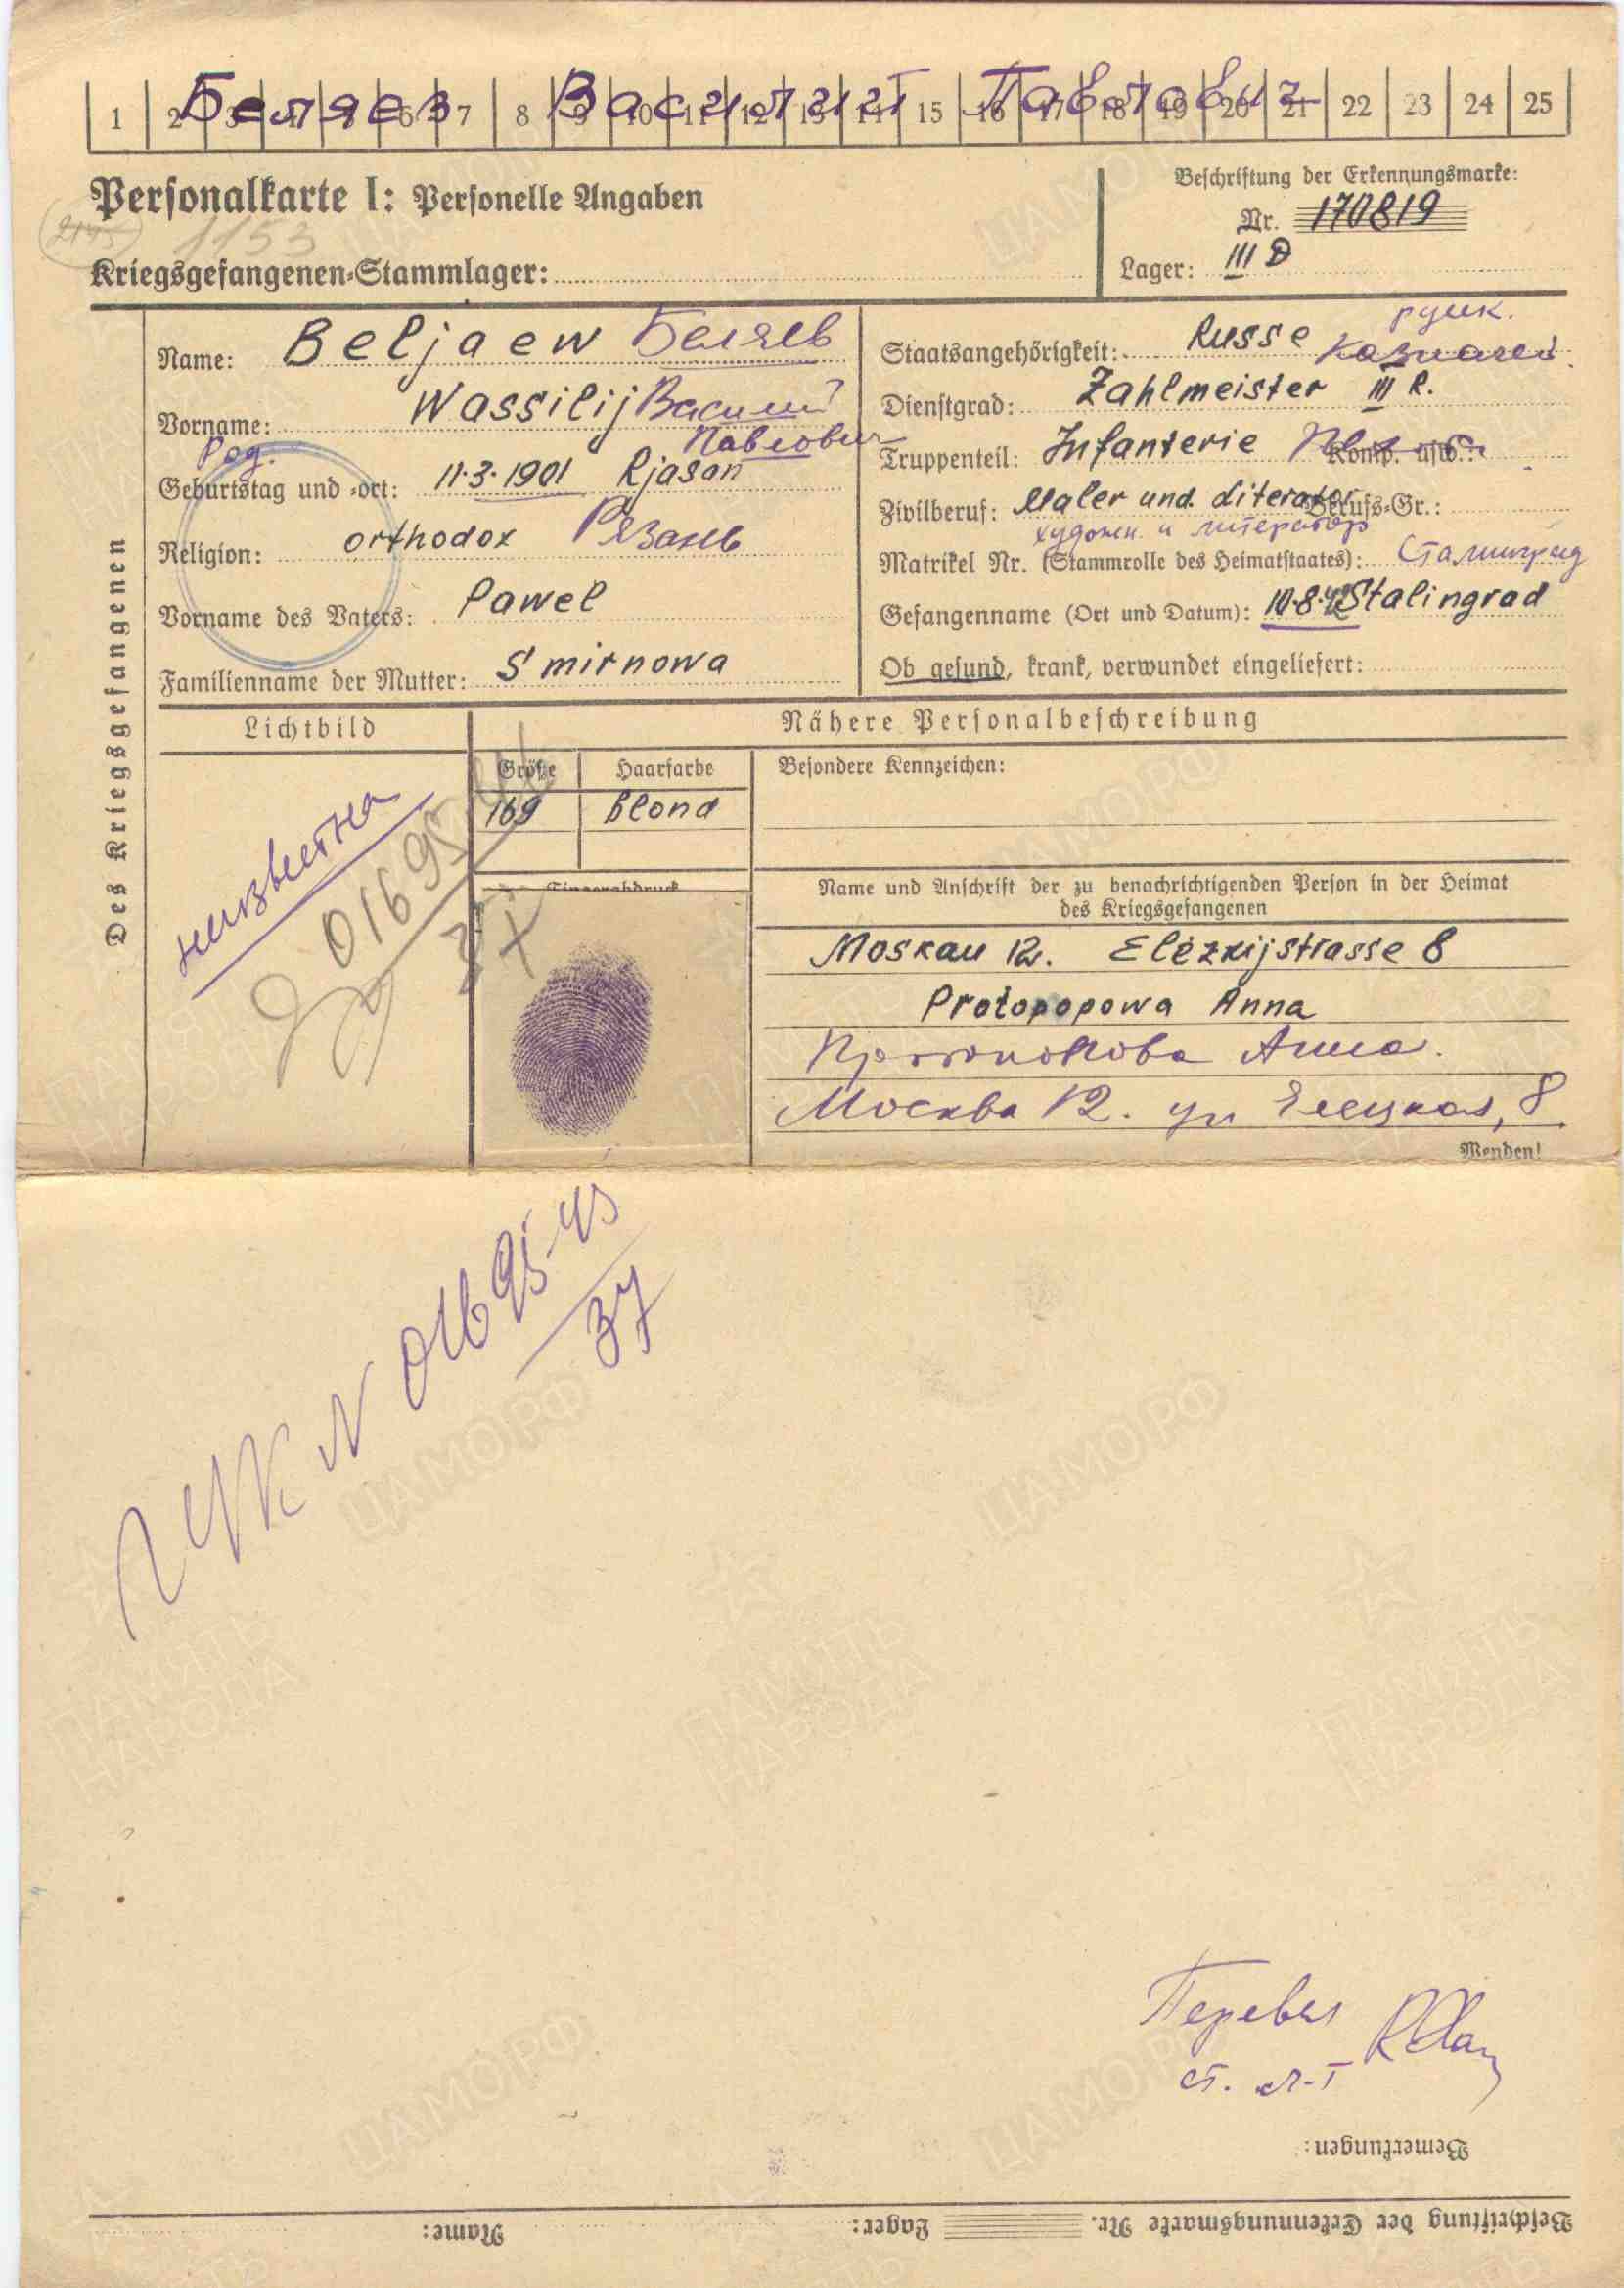 1 2 3 4 5 6 7 8 9 10 11 12 13 14 15 16 17 18 19 20 21 22 23 24 25
Беляев Василий Павлович
Personalkarte I: Personelle Angaben
1153
Kriegsgefangenen-Stammlager:
Beschriftung der Erkennungsmarke:
Nr. 170819
Lager: III D
Des Kriegsgefangenen
Name: Beljaew Беляев
Vorname: Wassilij Василий
Павлович
Род.
Geburtstag und -ort: 11.3.1901 Rjasan
Religion: orthodox Рязань
Vorname des Vaters: Pawel
Familienname der Mutter: Smirnowa
русск.
Staatsangehörigkeit: Russe Казначей
Dienstgrad: Zahlmeister III R.
Truppenteil: Infanterie Komp. usw.:
Zivilberuf: Maler und Literator Berufs-Gr.:
художн. и литератор
Matrikel Nr. (Stammrolle des Heimatstaates): Сталинград
Gefangenname (Ort und Datum): 10.8.42 Stalingrad
Ob gesund, krank, verwundet eingeliefert:
Lichtbild
Nähere Personalbeschreibung
Größe Haarfarbe
169 blond
Besondere Kennzeichen:
Fingerabdruck
неизвестна
Name und Anschrift der zu benachrichtigenden Person in der Heimat
des Kriegsgefangenen
Moskau 12. Elezkijstrasse 8
Protopopowa Anna
Протопопова Анна.
Москва 12. ул Елецкая, 8
Wenden!
N 01695-45
37
Перевел
ст. л-т
Bemerkungen:
Beschriftung der Erkennungsmarke Nr. Lager: Name:
ЦАМО.РФ
ПАМЯТЬ
НАРОДА